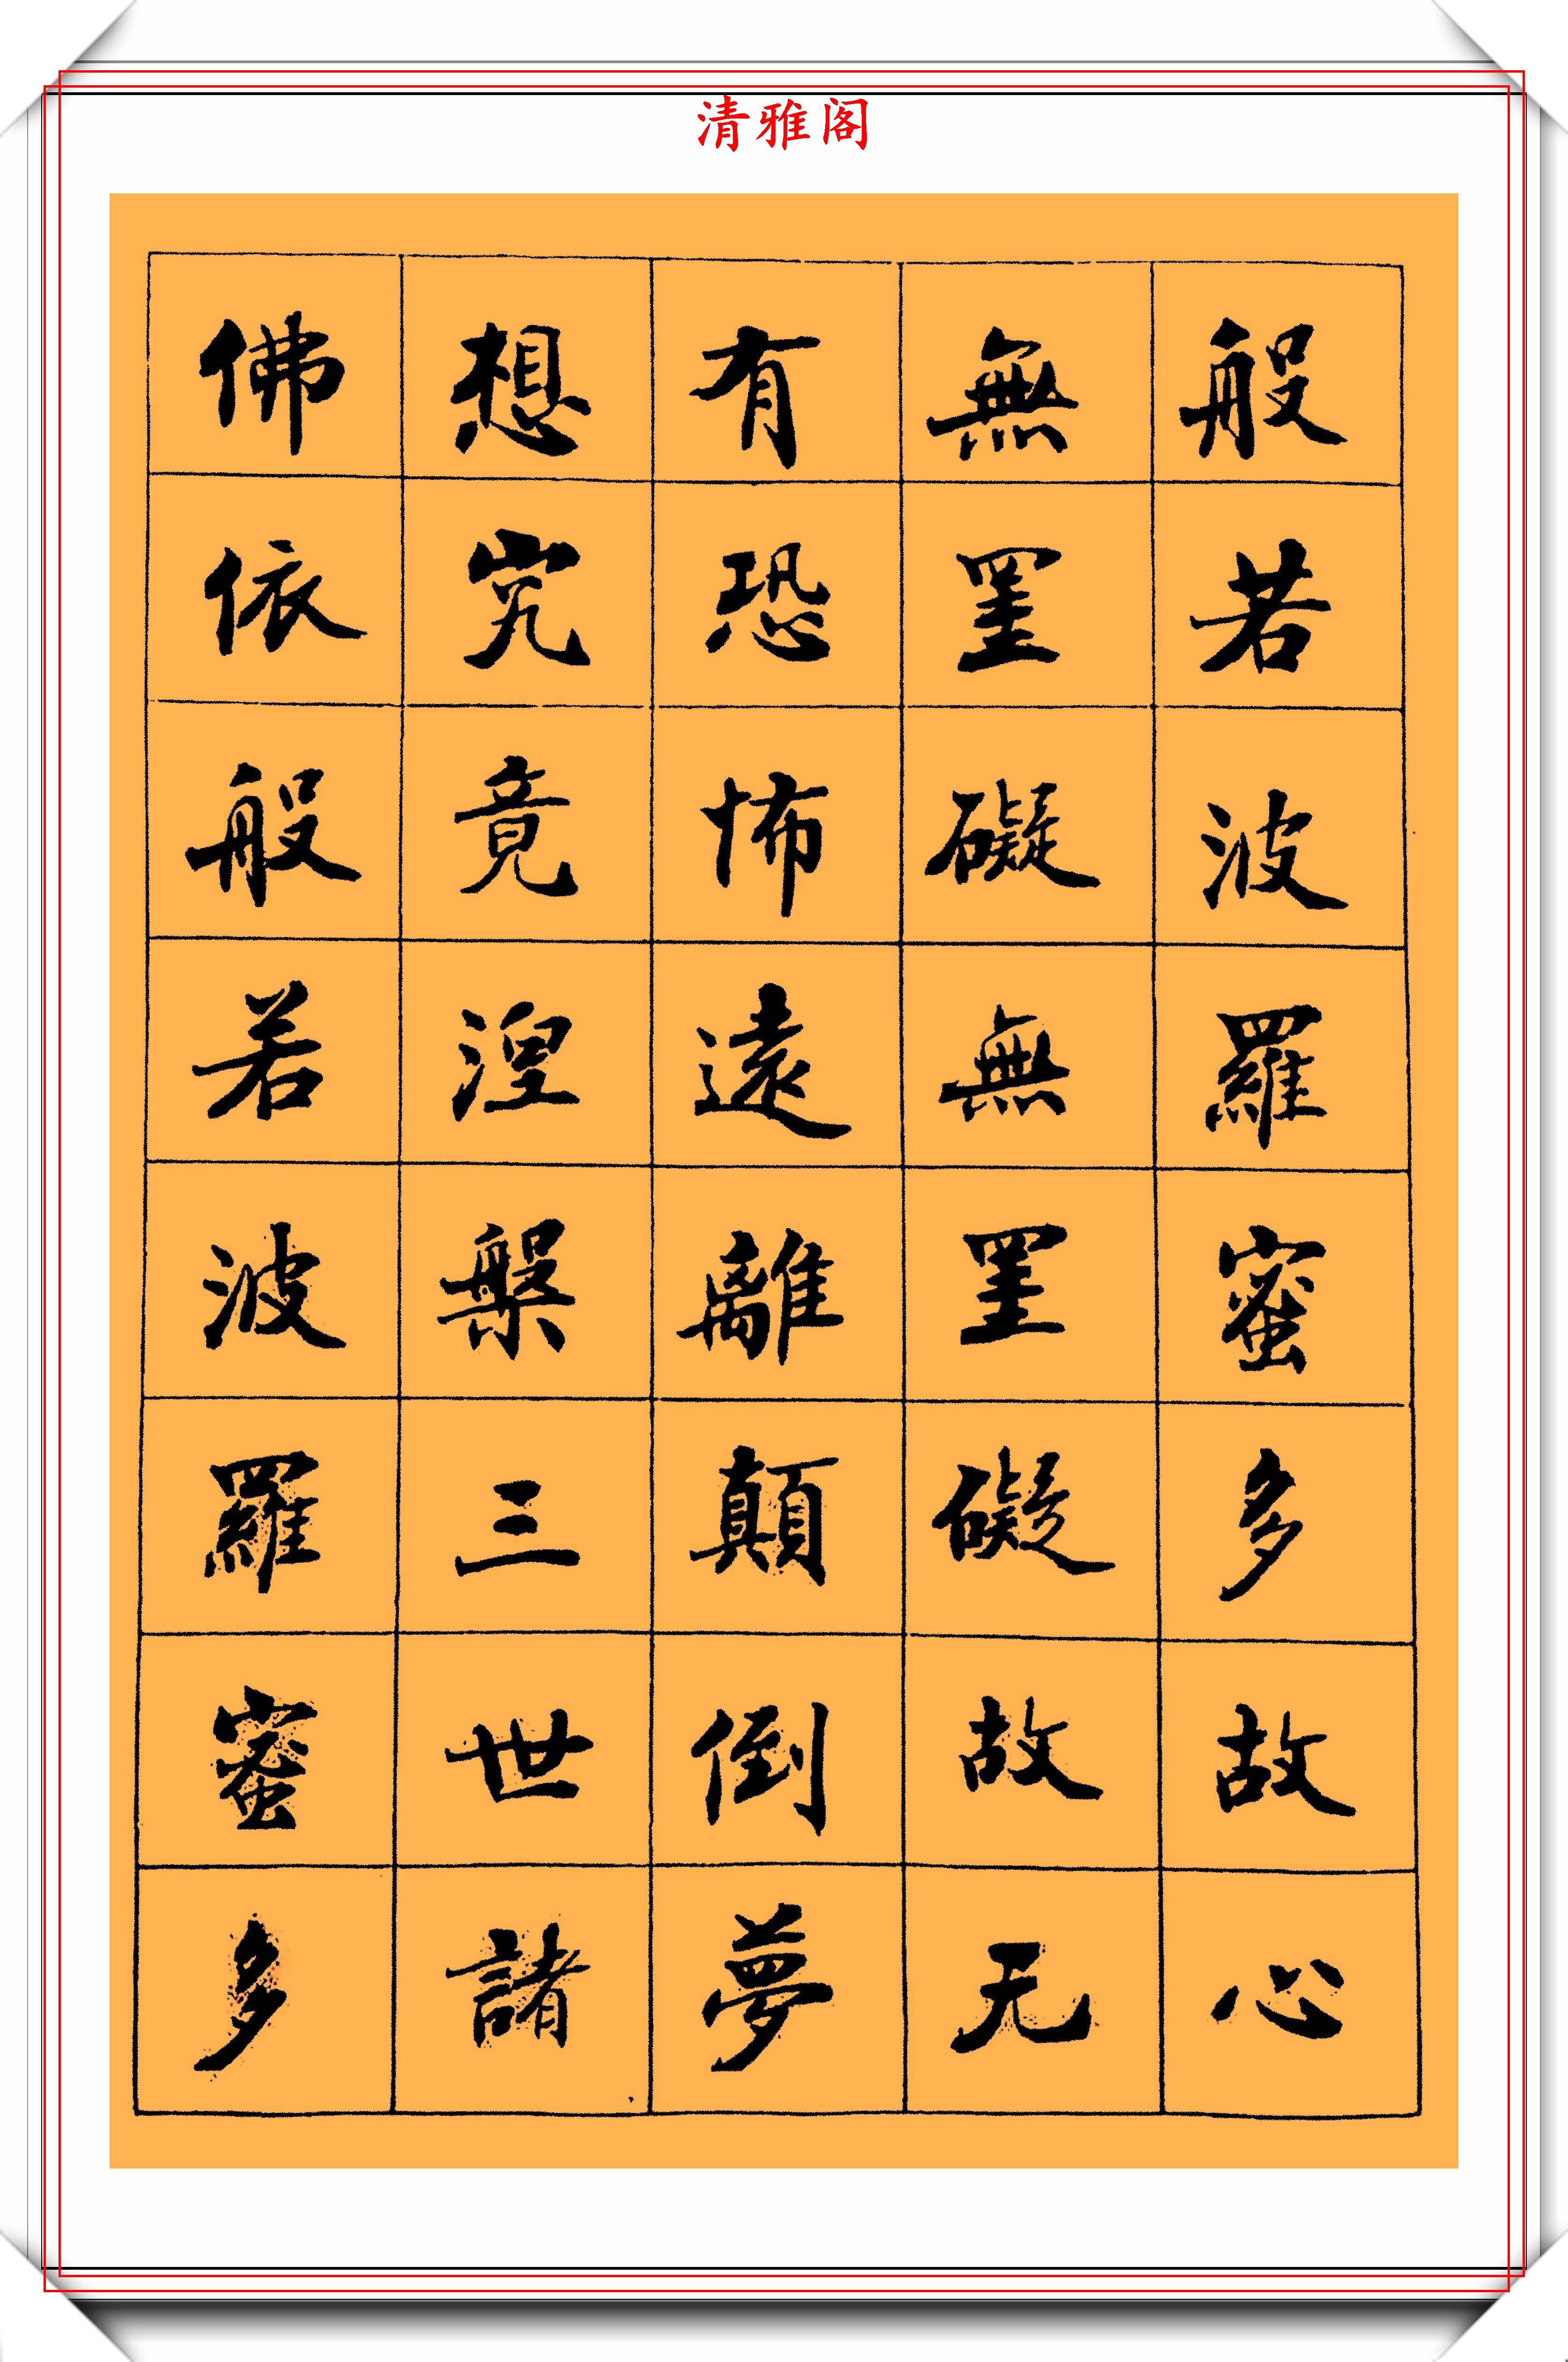 清雅阁
般若波羅蜜多故心
無罣礙無罣礙故无
有恐怖遠離顛倒夢
想究竟涅槃三世諸
佛依般若波羅蜜多